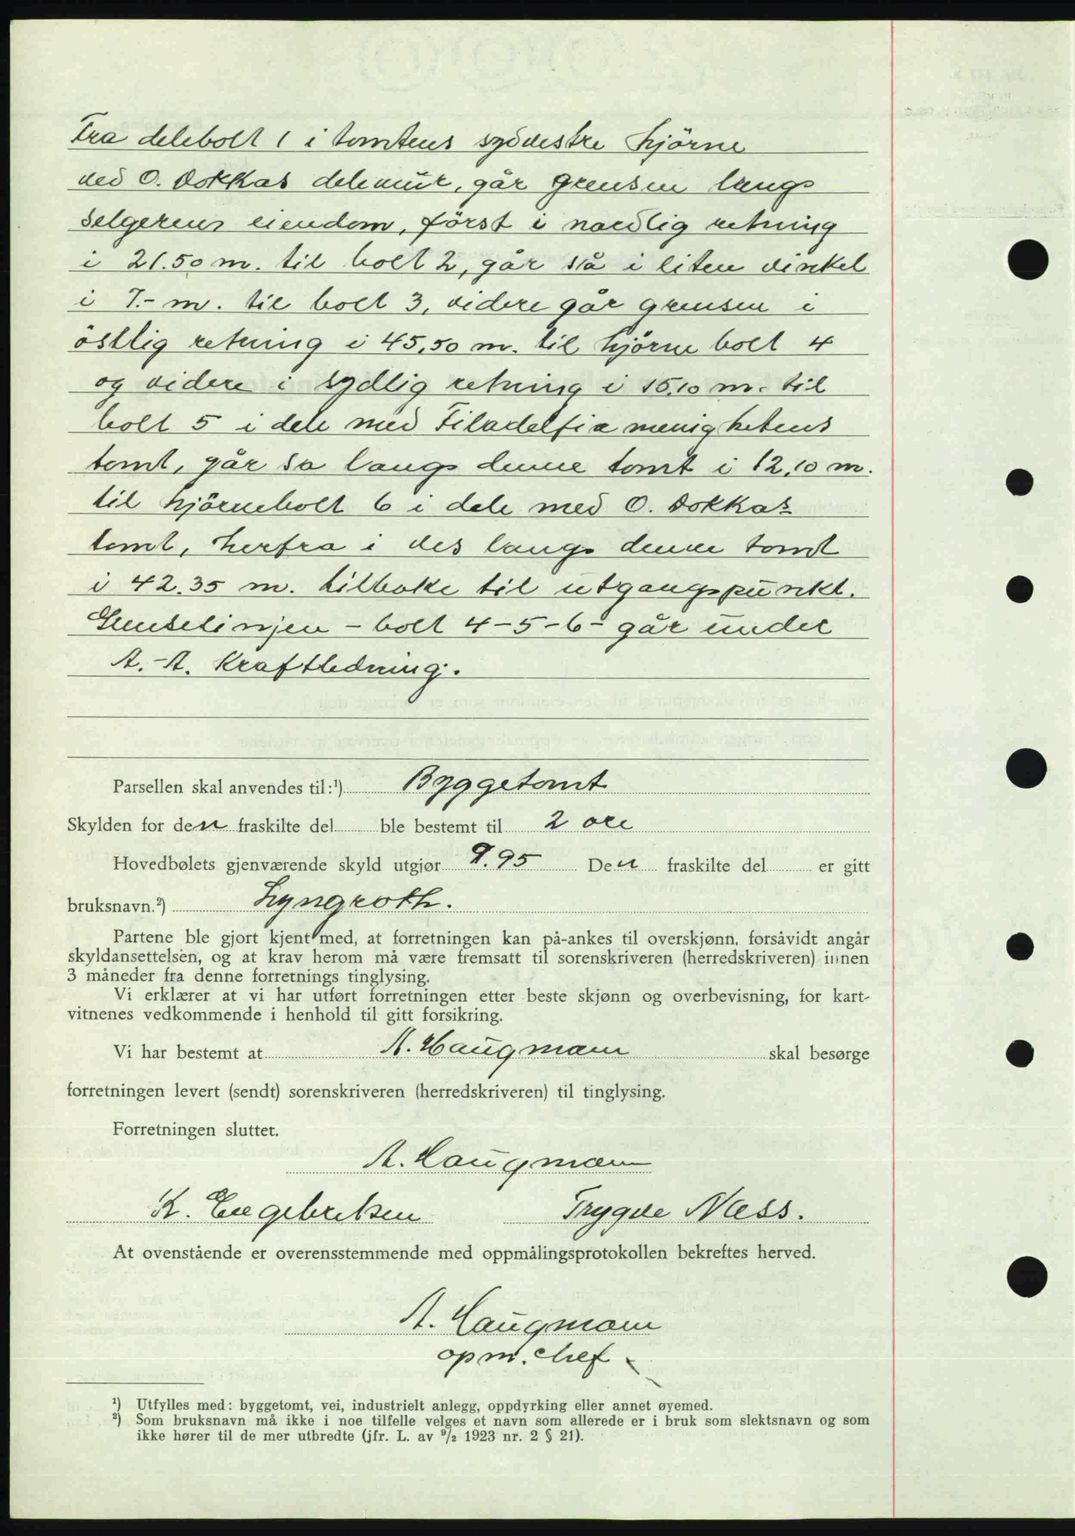 Fra delebolt 1 i tomtens sydvestre hjörne
ved O. Dokkas delemur, går grensen langs
selgerens eiendom, först i nordlig retning
i 21.50 m. til bolt 2, går så i liten vinkel
i 7.- m. til bolt 3, videre går grensen i
östlig retning i 45,50 m. til hjörne bolt 4
og videre i sydlig retning i 15,10 m. til
bolt 5 i dele med Filadelfia menighetens
tomt, går sa langs denne tomt i 12,10 m.
til hjörnebolt 6 i dele med O. Dokkas
tomt, herfra i ves langs denne tomt
i 42.35 m. tilbake til utgangspunkt.
Grenselinjen – bolt 4-5-6- går under
A.-A. Kraftledning.
Parsellen skal anvendes til:¹) Byggetomt
Skylden for den fraskilte del ble bestemt til 2 øre
Hovedbølets gjenværende skyld utgjør 9.95 Den fraskilte del er gitt
bruksnavn.²) Lyngroth.
Partene ble gjort kjent med, at forretningen kan på-ankes til overskjønn, forsåvidt angår
skyldansettelsen, og at krav herom må være fremsatt til sorenskriveren (herredskriveren) innen
3 måneder fra denne forretnings tinglysing.
Vi erklærer at vi har utført forretningen etter beste skjønn og overbevisning, for kart-
vitnenes vedkommende i henhold til gitt forsikring.
Vi har bestemt at A. Haugmann skal besørge
forretningen levert (sendt) sorenskriveren (herredskriveren) til tinglysing.
Forretningen sluttet.
A. Haugmann
K. Engebretsen Trygve Næss.
At ovenstående er overensstemmende med oppmålingsprotokollen bekreftes herved.
A. Haugmann
opm. chef
¹) Utfylles med: byggetomt, vei, industrielt anlegg, oppdyrking eller annet øyemed.
²) Som bruksnavn må ikke i noe tilfelle velges et navn som allerede er i bruk som slektsnavn og som
ikke hører til de mer utbredte (jfr. L. av ⁹/₂ 1923 nr. 2 § 21).